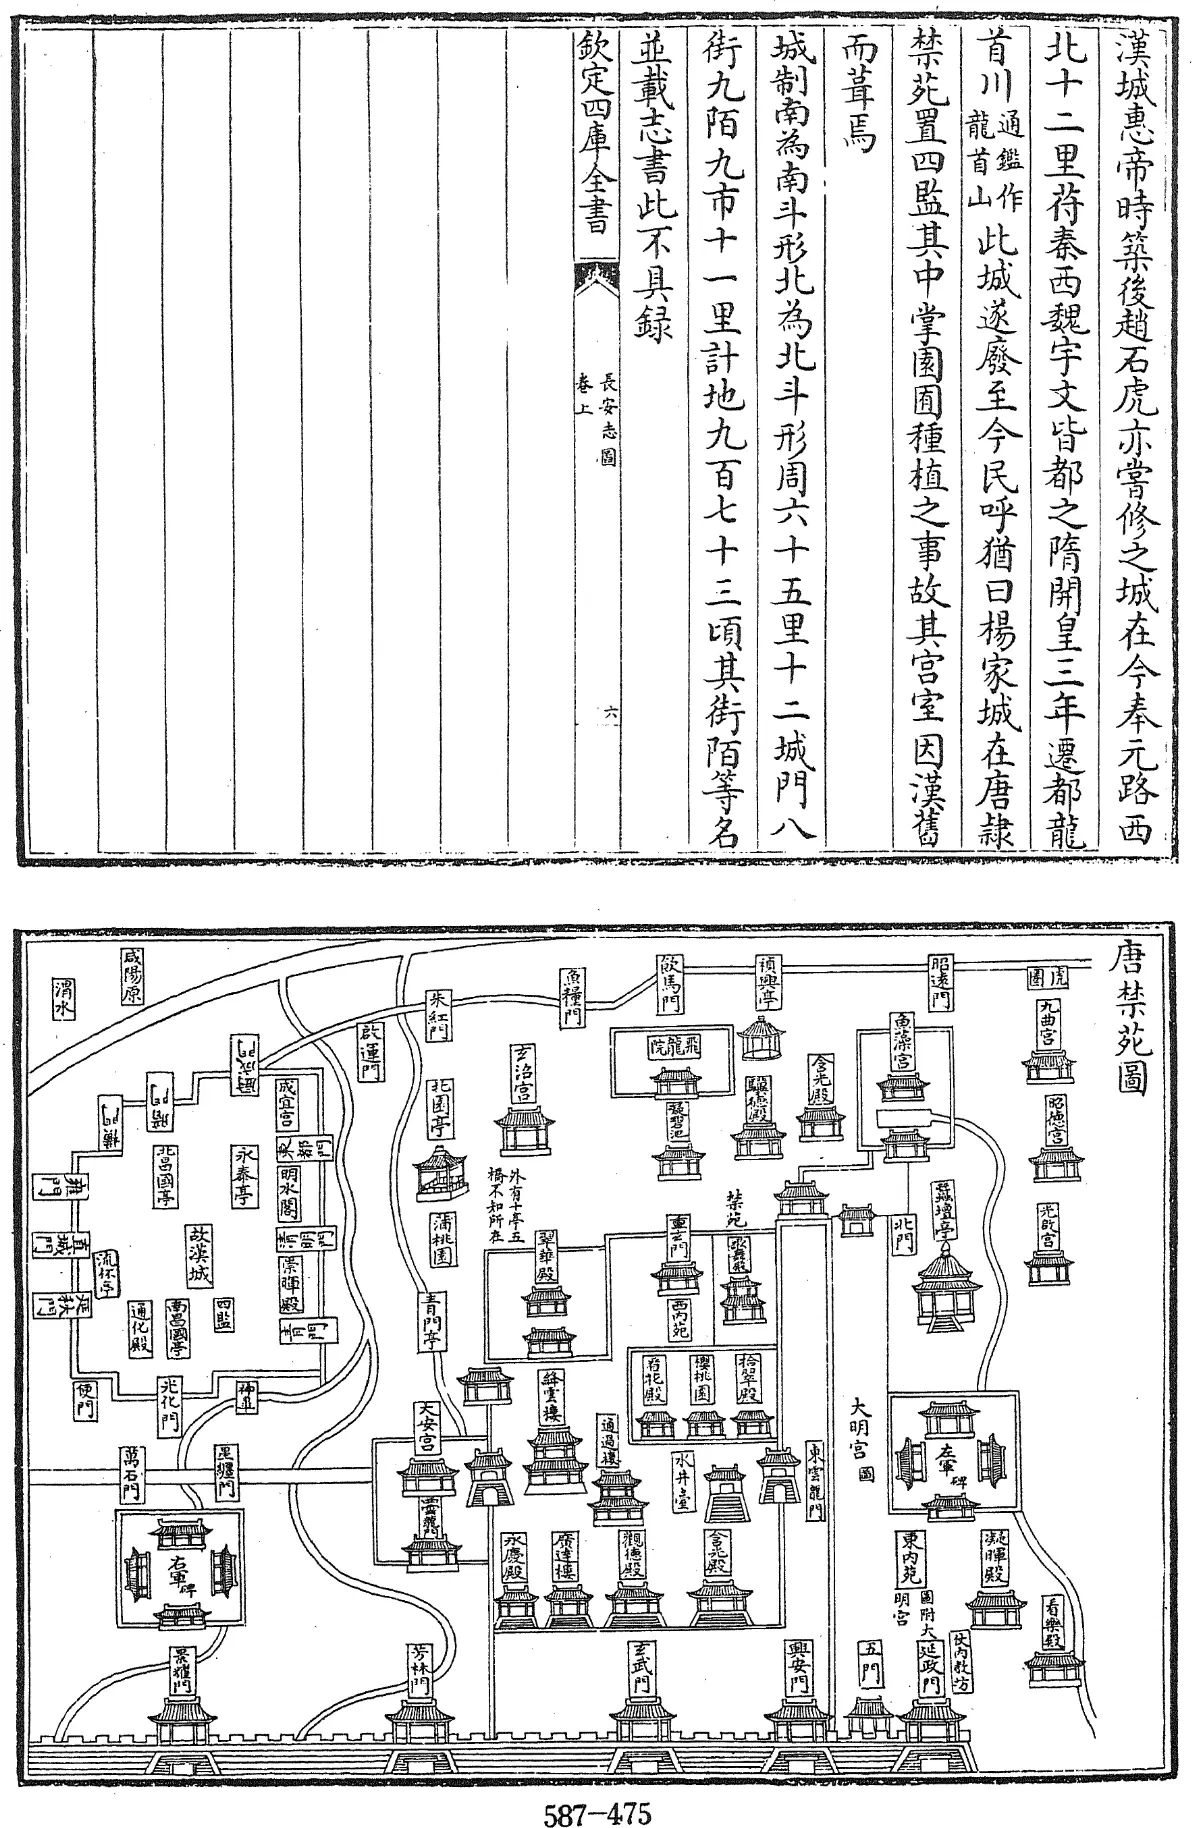 漢城惠帝時築後趙石虎亦嘗修之城在今奉元路西
北十二里苻秦西魏宇文皆都之隋開皇三年遷都龍
首川通鑑作龍首山此城遂廢至今民呼猶曰楊家城在唐隷
禁苑置四監其中掌園囿種植之事故其宫室因漢舊
而葺焉
城制南為南斗形北為北斗形周六十五里十二城門八
街九陌九市十一里計地九百七十三頃其街陌等名
並載志書此不具録
欽定四庫全書
長安志圖
卷上
六
唐禁苑圖
虎圈
九曲宮
昭德宮
光啟宮
昭遠門
魚藻宮
北門
蠶壇亭
大明宮
圖
左軍
碑
東内苑
圖附大
明宮
凝暉殿
看樂殿
仗内教坊
延政門
五門
興安門
禎興亭
含光殿
驥德殿
飲馬門
飛龍院
凝碧池
禁苑
重玄門
西内苑
拾翠殿
櫻桃園
看花殿
東雲龍門
水井
含光殿
觀德殿
廣達樓
永慶殿
玄武門
魚糧門
玄沼宮
外有十亭五
橋不知所在
翠華殿
絳雲樓
通過樓
朱紅門
啟運門
北園亭
蒲桃園
青門亭
大安宮
西雲龍門
芳林門
咸陽原
渭水
成宜宮
明水閣
景暉殿
永泰亭
北昌國亭
故漢城
流杯亭
通化殿
南昌國亭
四監
直城門
便門
光化門
神臯
萬石門
右軍
碑
景耀門
587-475